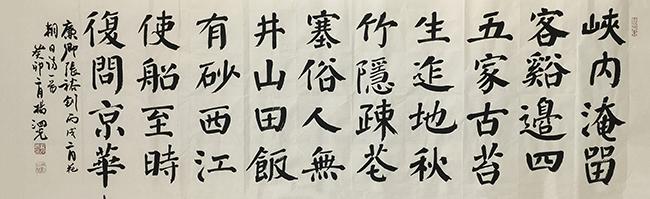 峽内淹畱
客谿邊四
五家古苔
生迮地秋
竹隱疎花
塞俗人無
井山田飯
有砂西江
使船至時
復問京華
廉卿張裕釗丙戌二月花
朝日詩一首
癸卯二月